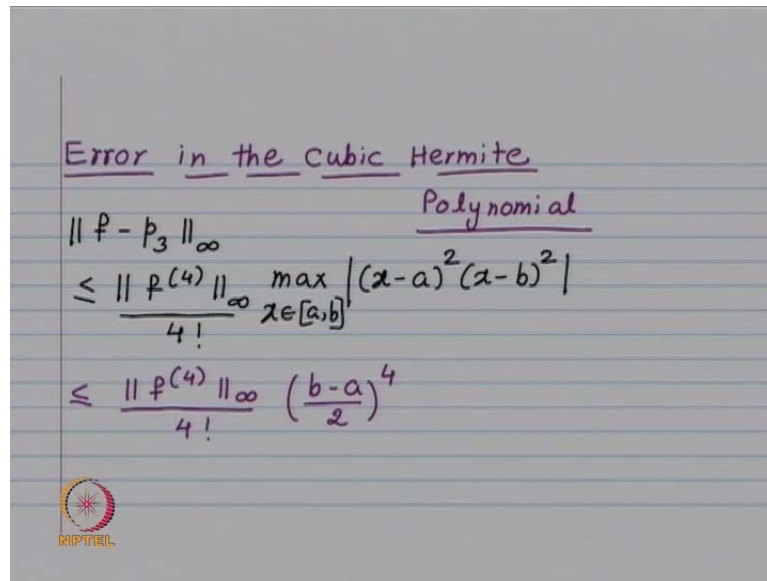 Error in the cubic Hermite
Polynomial
|| f - p_3 ||_∞
≤ || f^(4) ||_∞ / 4! max_{x∈[a,b]} |(x-a)^2 (x-b)^2|
≤ || f^(4) ||_∞ / 4! ((b-a)/2)^4
NPTEL